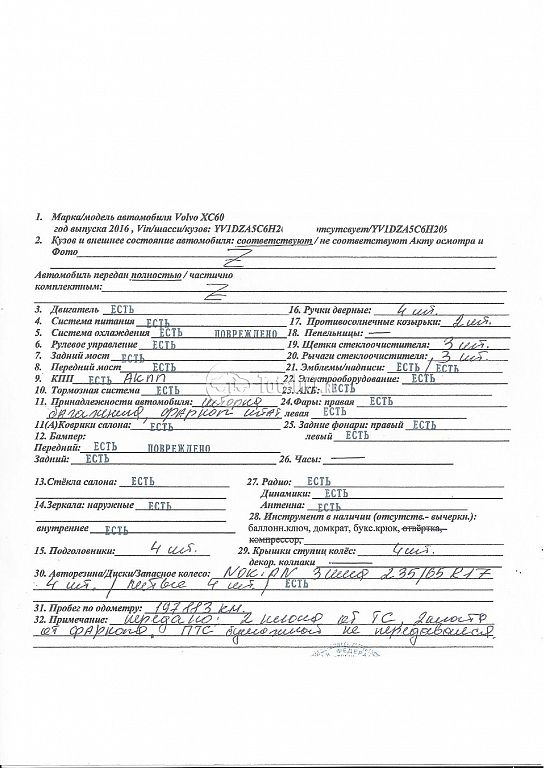 1. Марка/модель автомобиля Volvo XC60
год выпуска 2016 , Vin/шасси/кузов: YV1DZA5C6H2 отсутсвует/YV1DZA5C6H20
2. Кузов и внешнее состояние автомобиля: соответствуют / не соответствуют Акту осмотра и
Фото Z
Автомобиль передан полностью / частично
комплектным: Z
3. Двигатель ЕСТЬ 16. Ручки дверные: 4 шт.
4. Система питания ЕСТЬ 17. Противосолнечные козырьки: 2 шт.
5. Система охлаждения ЕСТЬ ПОВРЕЖДЕНО 18. Пепельницы: —
6. Рулевое управление ЕСТЬ 19. Щетки стеклоочистителя: 3 шт.
7. Задний мост ЕСТЬ 20. Рычаги стеклоочистителя: 3 шт.
8. Передний мост ЕСТЬ 21. Эмблемы/надписи: ЕСТЬ / ЕСТЬ
9. КПП ЕСТЬ АКПП 22. Электрооборудование: ЕСТЬ
10. Тормозная система ЕСТЬ 23. АКБ: ЕСТЬ
11. Принадлежности автомобиля: шторка 24. Фары: правая ЕСТЬ
багажника фаркоп штат левая ЕСТЬ
11(А)Коврики салона: ЕСТЬ 25. Задние фонари: правый ЕСТЬ
12. Бампер: левый ЕСТЬ
Передний: ЕСТЬ ПОВРЕЖДЕНО
Задний: ЕСТЬ 26. Часы: —
13.Стёкла салона: ЕСТЬ 27. Радио: ЕСТЬ
Динамики: ЕСТЬ
14.Зеркала: наружные ЕСТЬ Антенна: ЕСТЬ
28. Инструмент в наличии (отсутств.- вычеркн.):
внутреннее ЕСТЬ баллонн.ключ, домкрат, букс.крюк, отвёртка,
компрессор,
15. Подголовники: 4 шт. 29. Крышки ступиц колёс: 4 шт.
декор. колпаки —
30. Авторезина/Диски/Запасное колесо: NOKIAN Зима 235/65 R17
4 шт. / Литые 4 шт. /
31. Пробег по одометру: 197883 км.
32. Примечание: передано: 2 ключа от ТС, 2 ключа
от фаркопа, ПТС бумажный не передавался.